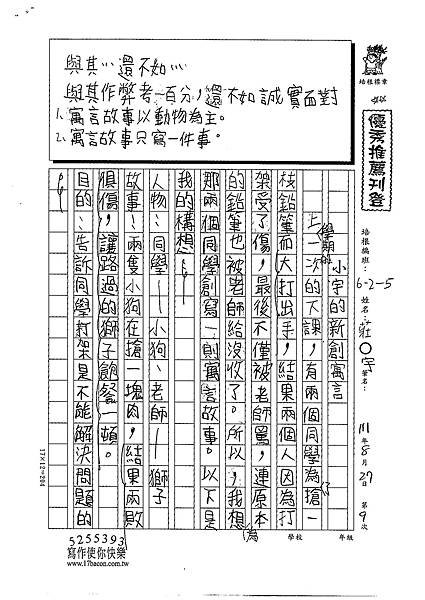 與其⋯還不如⋯
與其作弊考一百分，還不如誠實面對
1. 寓言故事以動物為主。
2. 寓言故事只寫一件事。
培根標章
優秀推薦刊登
培根編班：6-2-5 姓名：莊○宇 筆名：
111年8月27日 第9次
學校 年級
小宇的新創寓言
上學期的一次的下課，有兩個同學為搶一
枝鉛筆而大打出手，結果兩個人因為打
架受了傷，最後不僅被老師罵，連原本
的鉛筆也被老師給沒收了。所以，我想為
那兩個同學創寫一則寓言故事。以下是
我的構想：
人物：同學—小狗、老師—獅子
故事：兩隻小狗在搶一塊肉，結果兩敗
俱傷，讓路過的獅子飽餐一頓。
目的：告訴同學打架是不能解決問題的
17×12=204
5255393
寫作使你快樂
www.17bacon.com.tw